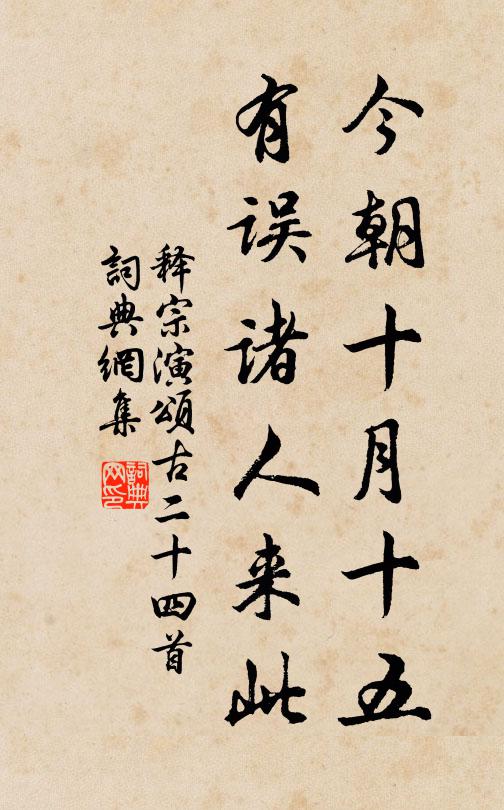 今朝十月十五
有误诸人来此
释宗演頌古二十四首
詞典網集
詞典
网印